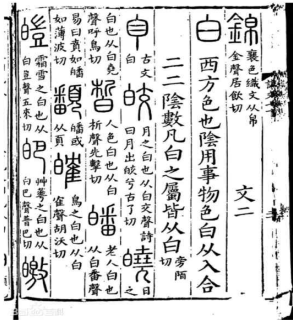 錦 襄邑織文从帛金聲居飲切 文二
白 西方色也陰用事物色白从入合
二二陰數凡白之屬皆从白 旁陌切
𦣺 古文白 皎 月之白也从白交聲詩曰月出皎兮古了切 皢 日之
白也从白堯聲呼鳥切 皙 人色白也从白析聲先擊切 皤 老人白也从白番聲
易曰賁如皤如薄波切 𩕏 皤或从頁 㿥 鳥之白也从白隺聲胡沃切
皚 霜雪之白也从白豈聲五來切 皅 艸華之白也从白巴聲普巴切 皦